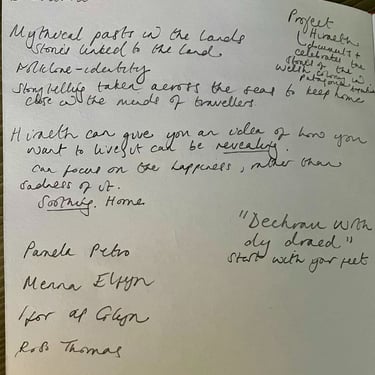 Mythical pasts in the lands
Stories linked to the land
Folklore-identity
Storytelling taken across the seas to keep home
close in the minds of travellers.
Project
Hiraeth
celebrates the
stories of the
Welsh colony in
Patagonia
Hiraeth can give you an idea of how you
want to live, it can be revealing.
Can focus on the happiness, rather than
sadness of it.
Soothing. Home
"Dechrau with
dy draed"
Start with your feet
Pamela Petro
Menna Elfyn
Ifor ap Glyn
Ross Thomas